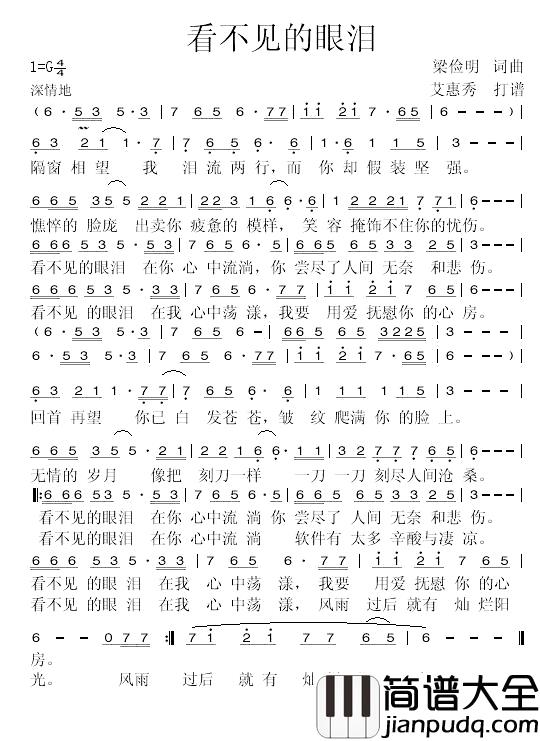 看不见的眼泪
1=G 4/4
梁俭明 词曲
深情地
艾惠秀 打谱
(6·53 5·3 | 765 6·77 | i i 2i 7·65 | 6---)
63 21 1·7 | 765 6·6· | 61 115 | 3---
隔窗相望 我 泪流两行,而 你却假装坚 强。
665 35 5221 | 223 16 6·6 | 222 1 221 771 | 6---
憔悴的脸庞 出卖你 疲惫的 模样, 笑 容 掩饰不住你的忧伤。
666535 53·53 | 765 5·6 | 665 65 33 25 | 3---
看不见的眼泪 在你 心中流淌,你 尝尽了人间 无奈 和悲 伤。
666535 53·53 | 765 6·77 | i i 2i 765 | 6---
看不见 的眼泪 在我 心中荡 漾,我要 用爱 抚慰你 的心 房。
(6·53 53·3 | 765 5·6 | 665 65 3225 | 3---
6·53 53·3 | 765 6·77 | i i 2i 765 | 6---)
63 211·77 | 765 6·6 | 11 115 | 3---
回首 再望 你已 白 发苍 苍,皱 纹 爬满 你 的脸 上。
665 35 5·21 | 221 66· | 3 32 77 765 | 6---
无情的 岁月 像把 刻刀一样 一刀 一刀 刻尽人间沧 桑。
666535 53·53 | 765 5·6 | 665 65 33 25 | 3---
看不见的眼泪 在你 心中流 淌 你 尝尽了 人间 无奈 和悲 伤。
看不见的眼泪 在你 心中流 淌 软件有 太多 辛酸与凄 凉。
666535 53·53 | 765 6·77 | i i 2i 765 |
看不见 的眼泪 在我 心中荡 漾, 我要 用爱 抚慰你 的心
看不见 的眼泪 在我 心中荡 漾, 风雨 过后 就有 灿 烂阳
6- - 077 :| 7i 2i 77 65 | 6--- |
房。
光。 风雨 过后 就 有 灿
简谱大全
jianpudq.com